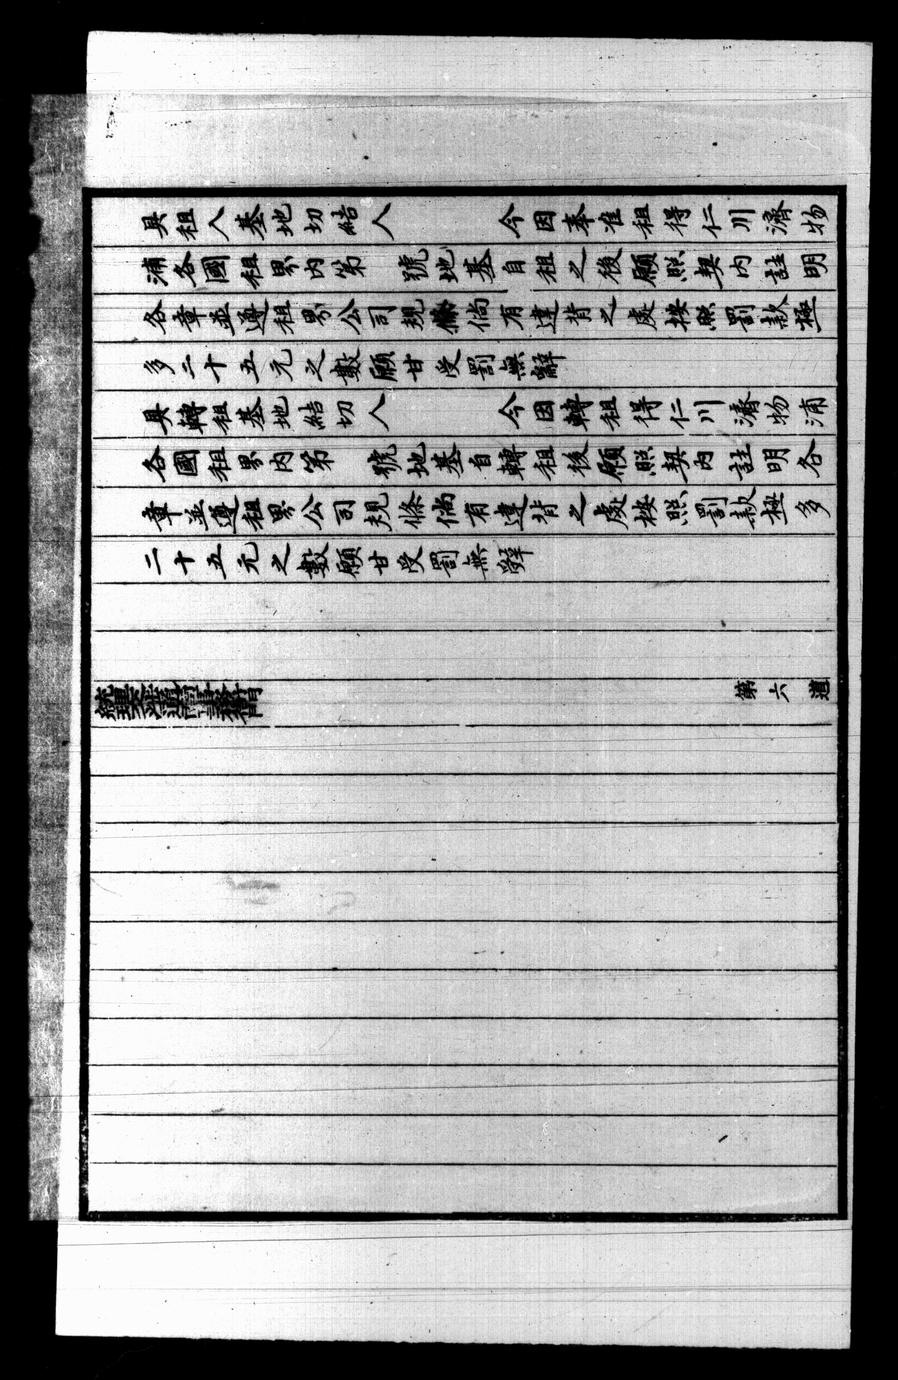 具租人基地切結人　　今因奉准租得仁川濟物
浦各國租界內第　號地基自租之後願照契內註明
各章並遵租界公司規條倘有違背之處按照罰款極
多二十五元之數願甘受罰無辭
具轉租基地結切人　　今因轉租得仁川濟物浦
各國租界內第　號地基自轉租後願照契內註明各
章並遵租界公司規條倘有違背之處按照罰款極多
二十五元之數願甘受罰無辭
第六道